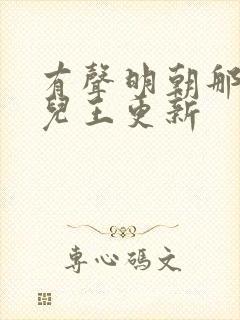 有聲明朝那
兒王更新
專心碼文